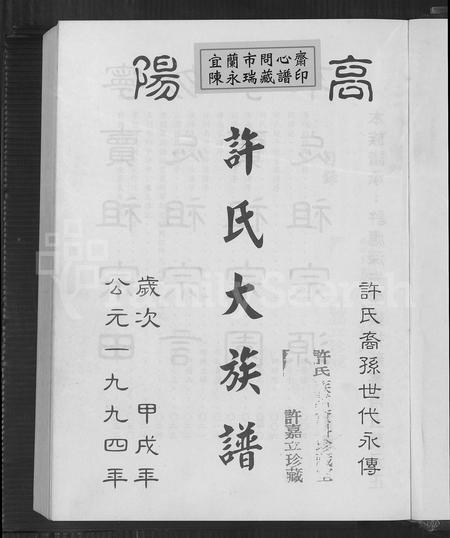 宜蘭市問心齋
陳永瑞藏譜印
高陽
許氏裔孫世代永傳
許氏大族譜
許嘉立珍藏
歲次 甲戌年
公元一九九四年